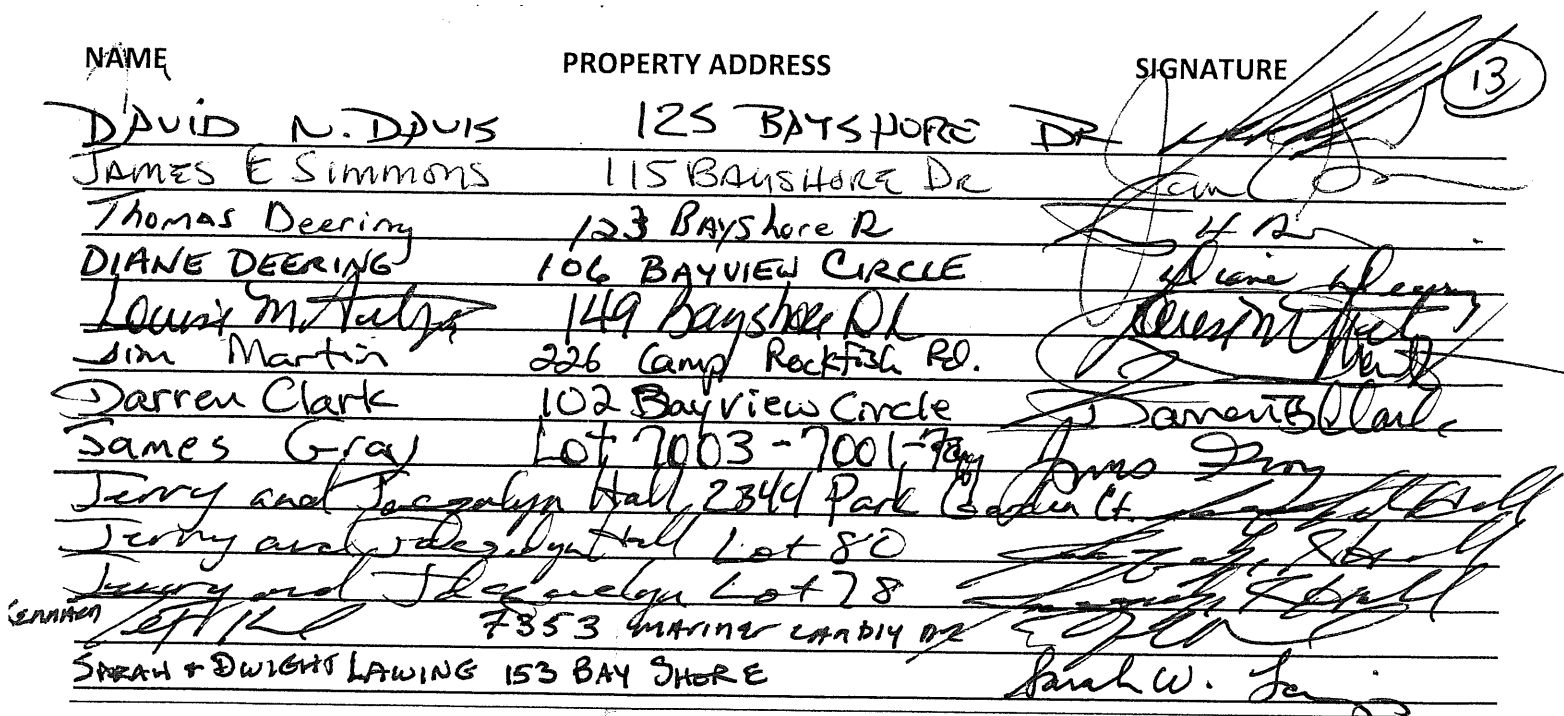 NAME PROPERTY ADDRESS SIGNATURE 13
DAVID N. DAVIS 125 BAYSHORE DR
JAMES E SIMMONS 115 BAYSHORE DR
Thomas Deering 123 BAYShore R
DIANE DEERING 106 BAYVIEW CIRCLE Diane Deering
Louise M. 149 Bayshore DR
Jim Martin 226 Camp Rockfish Rd.
Darren Clark 102 Bayview Circle Darren B Clark
James Gray Lot 7003-7001- James Gray
Jerry and Jacqualyn Hall 2344 Park Garden Ct.
Jerry and Jacqualyn Hall Lot 80
Jerry and Jacquelyn Lot 78
Jeff 7353 MARINER LANDIY DR
SARAH + DWIGHT LAWING 153 BAY SHORE Sarah W.